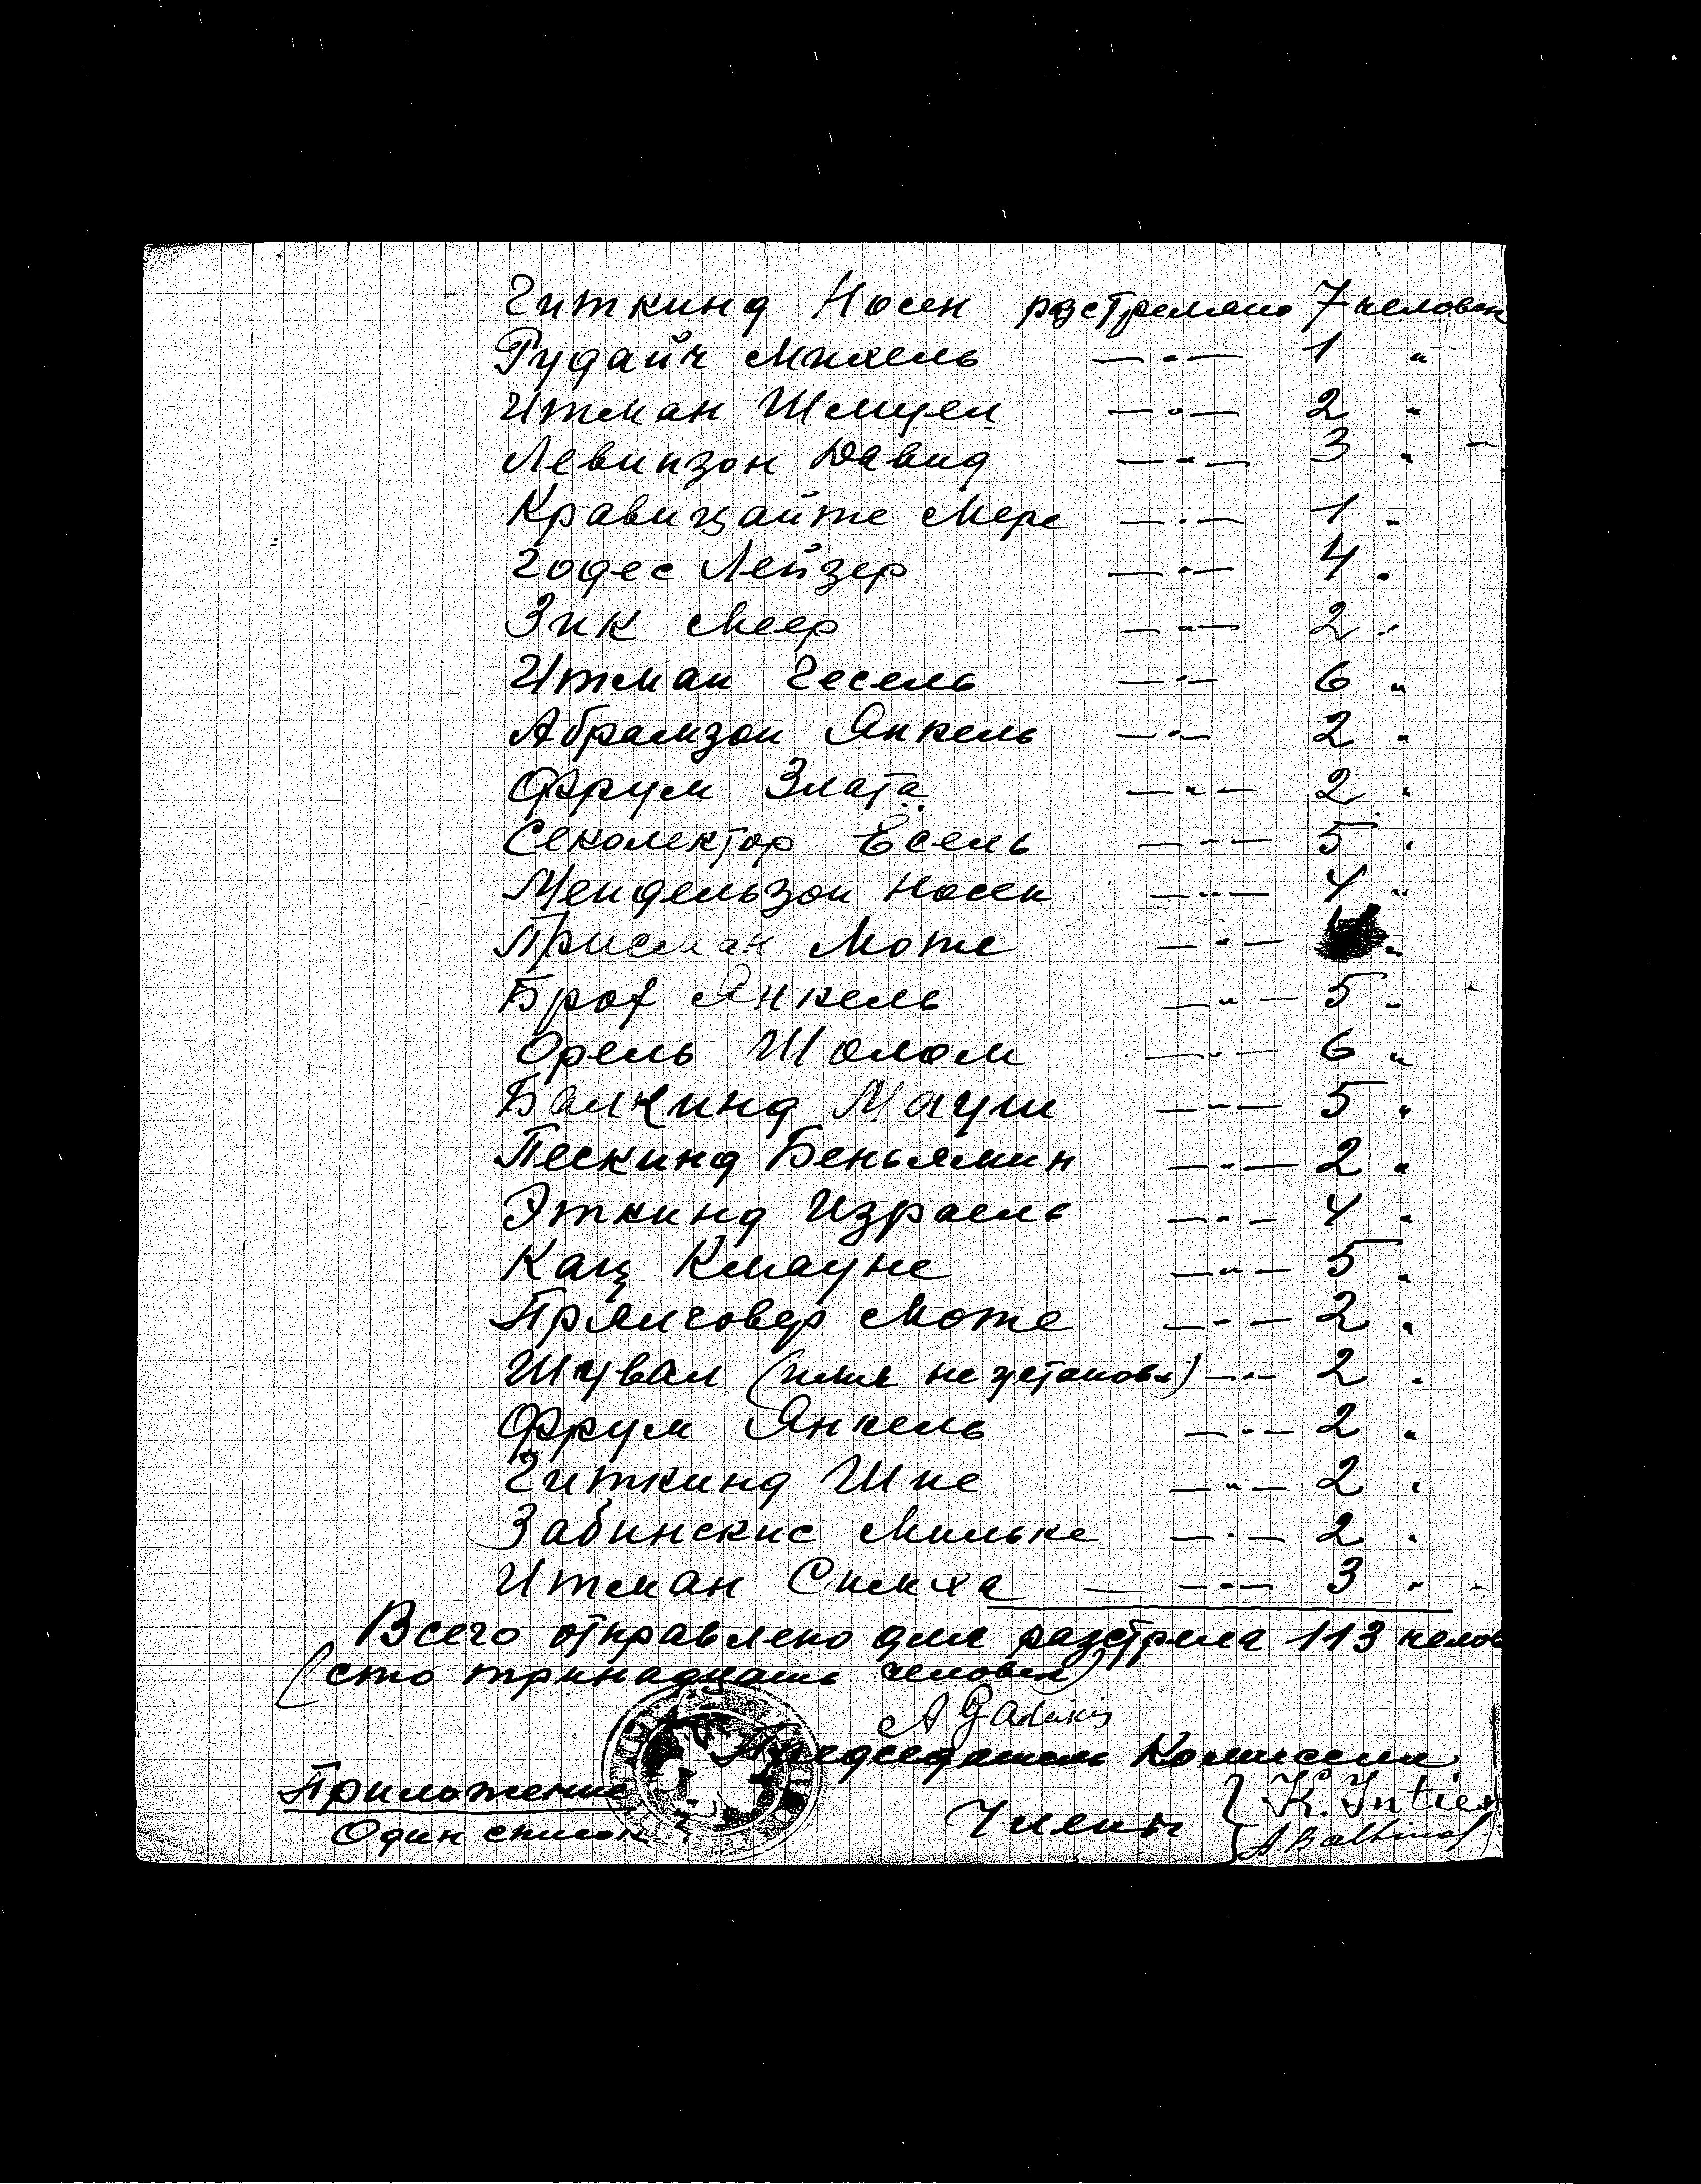 Гиткинд Носен разстреляно 7 человек
Рудайч Михель —"— 1 "
Итман Шмуел —"— 2 "
Левинзон Давид —"— 3 "
Кравицайте Мере —"— 1 "
Годес Лейзер —"— 4 "
Зик Меер —"— 2 "
Итман Гесель —"— 6 "
Абрамзон Янкель —"— 2 "
Фрум Злата —"— 2 "
Секолектор Есель —"— 5 "
Мендельзон Носен —"— 4 "
Присман Моте —"— "
Янкель —"— 5 "
Орель Шолом —"— 6 "
Балкинд Мауш —"— 5 "
Пескинд Беньямин —"— 2 "
Эткинд Израель —"— 4 "
Кац Кмауне —"— 5 "
Прялговер Моте —"— 2 "
Шувал (имя не установл) —"— 2 "
Фрум Янкель —"— 2 "
Гиткинд Шие —"— 2 "
Забинскис Мильке —"— 2 "
Итман Симха —"— 3 "
Всего отправлено для разстрела 113 челов
(сто тринадцать человек)
Председатель Комиссии
Приложение
Члены { K. Intien
Один список